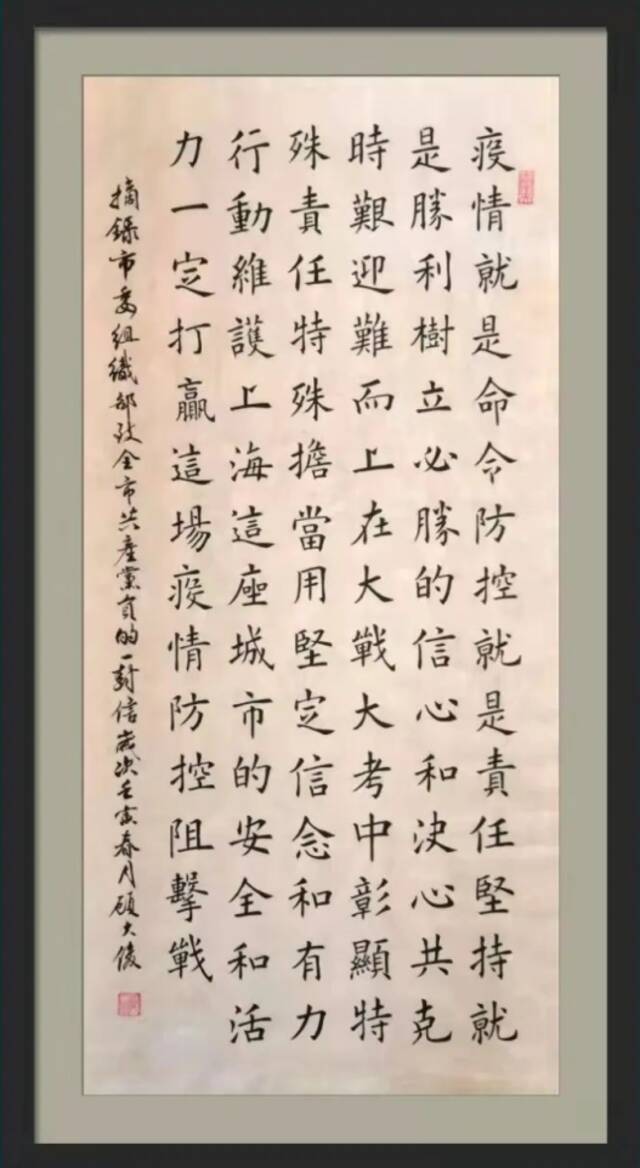 疫情就是命令防控就是責任堅持就
是勝利樹立必勝的信心和决心共克
時艱迎難而上在大戰大考中彰顯特
殊責任特殊擔當用堅定信念和有力
行動維護上海這座城市的安全和活
力一定打贏這場疫情防控阻擊戰
摘錄市委組織部致全市共產黨員的一封信歲次壬寅春月顧大俊